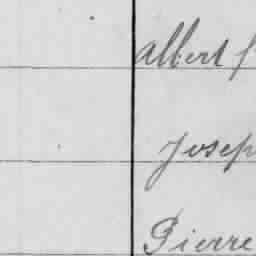 Albert f
Josep
Pierre